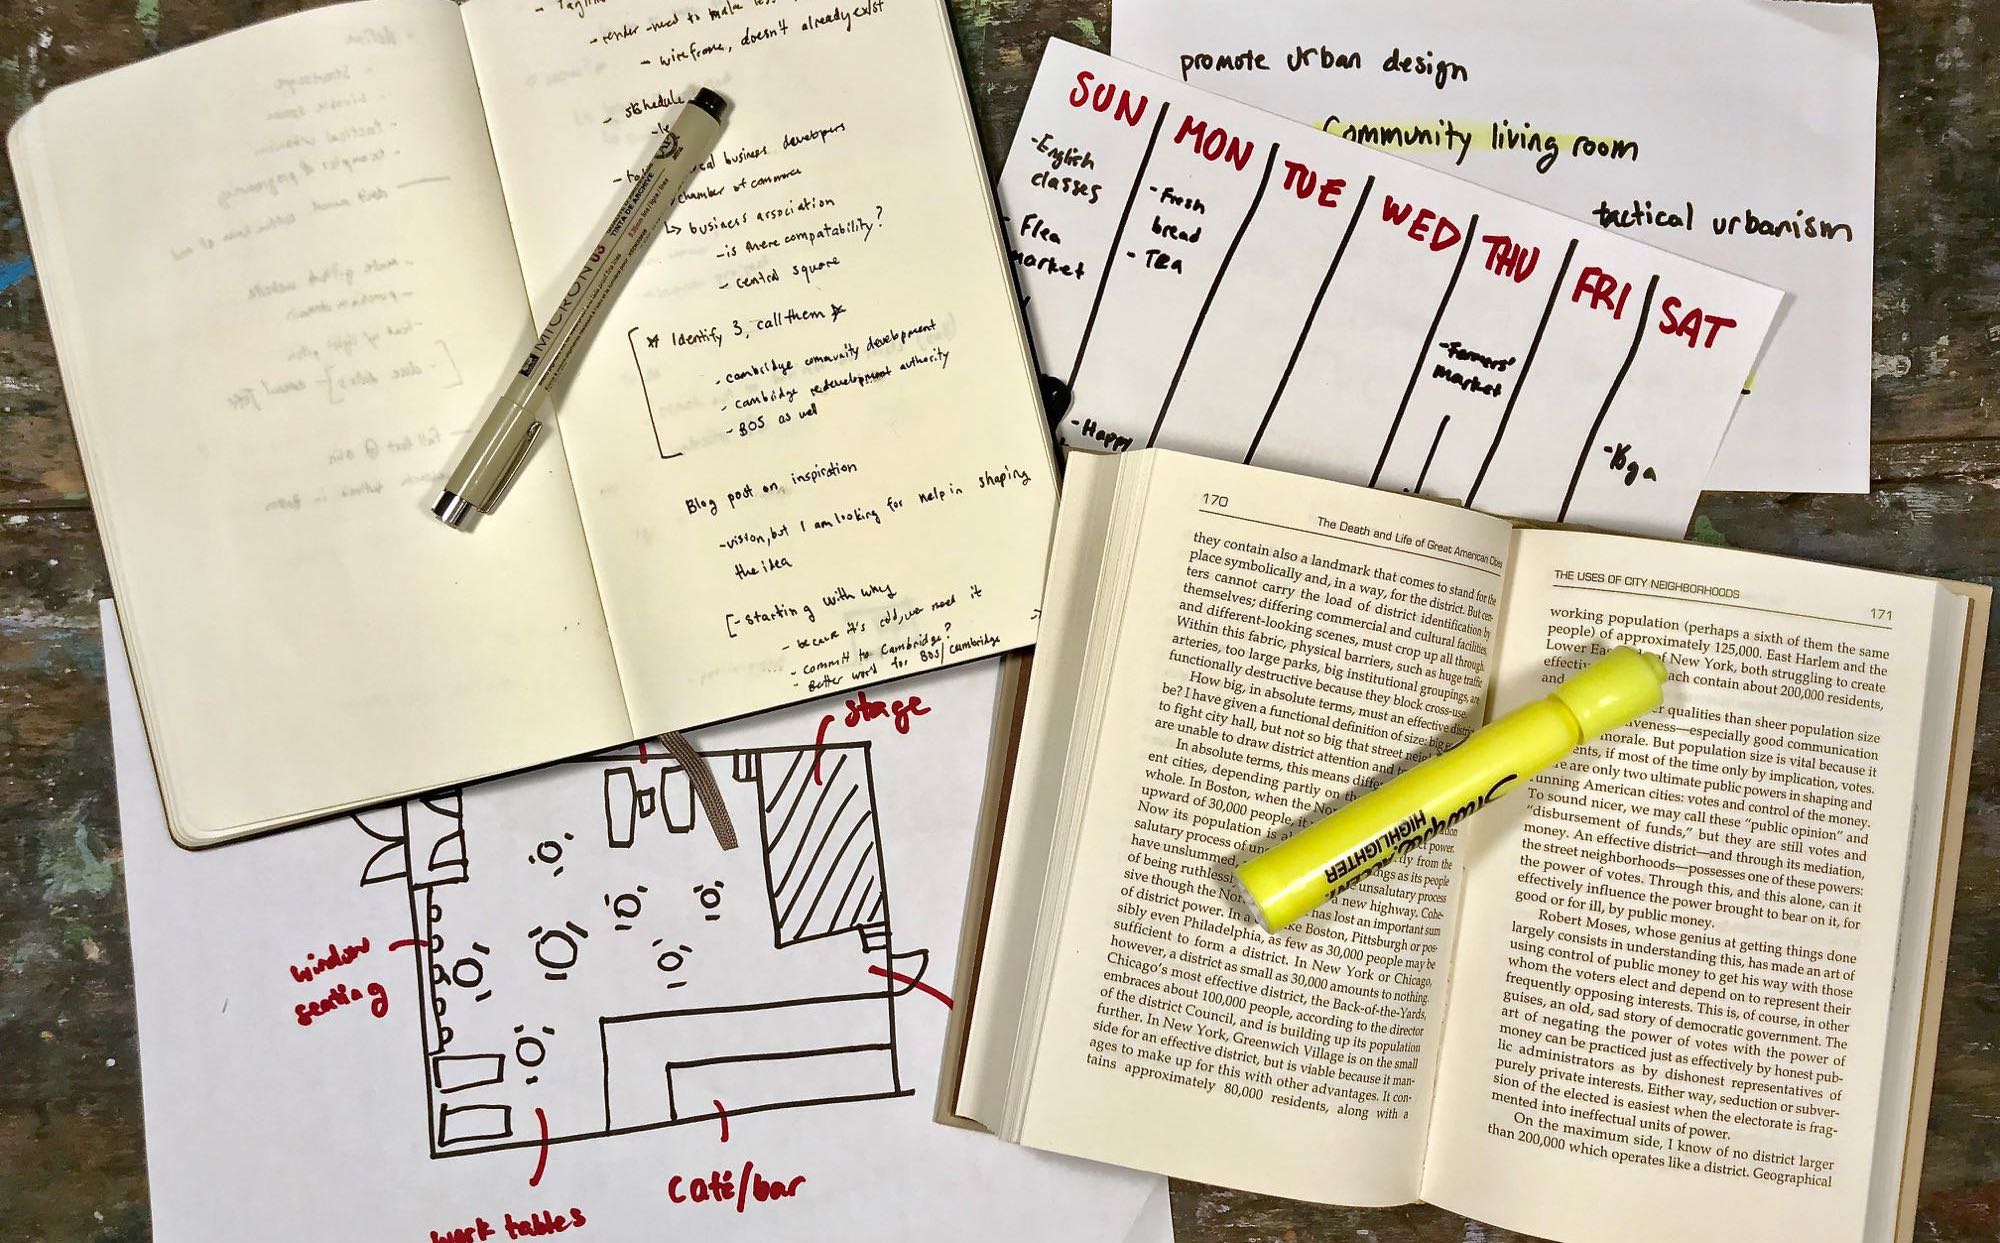 - render - need to make
- wireframe, doesn't already exist
- schedule
business developers
chamber of commerce
↳ business association
- is there compatability?
- central square
* Identify 3, call them *
- cambridge community development
- cambridge redevelopment authority
- BOS as well
Blog post on inspiration
- vision, but I am looking for help in shaping
the idea
[- starting with why
- because it's cold, we need it
- commit to Cambridge?
- Better world for BOS/cambridge
MICRON 03
TINTA DE ARCHIVE
promote urban design
Community living room
tactical urbanism
SUN MON TUE WED THU FRI SAT
- English
classes
- Flea
market
- Happy
- Fresh
bread
- Tea
- Farmers'
market
- Yoga
stage
window
seating
work tables
café/bar
170
The Death and Life of Great American Cities
they contain also a landmark that comes to stand for the
place symbolically and, in a way, for the district. But cen-
ters cannot carry the load of district identification by
themselves; differing commercial and cultural facilities,
and different-looking scenes, must crop up all through.
Within this fabric, physical barriers, such as huge traffic
arteries, too large parks, big institutional groupings, are
functionally destructive because they block cross-use.
How big, in absolute terms, must an effective district
be? I have given a functional definition of size: big
to fight city hall, but not so big that street
are unable to draw district attention and
In absolute terms, this means
ent cities, depending partly on the
whole. In Boston, when the
upward of 30,000 people,
Now its population is
salutary process of
have unslummed,
of being ruthlessly
a new highway. Cohe-
sive though the
has lost an important sum
of district power. In a
like Boston, Pittsburgh or pos-
sibly even Philadelphia, as few as 30,000 people may be
sufficient to form a district. In New York or Chicago,
however, a district as small as 30,000 amounts to nothing.
Chicago's most effective district, the Back-of-the-Yards,
embraces about 100,000 people, according to the director
of the district Council, and is building up its population
further. In New York, Greenwich Village is on the small
side for an effective district, but is viable because it man-
ages to make up for this with other advantages. It con-
tains approximately 80,000 residents, along with a
THE USES OF CITY NEIGHBORHOODS
171
working population (perhaps a sixth of them the same
people) of approximately 125,000. East Harlem and the
Lower East Side of New York, both struggling to create
each contain about 200,000 residents,
and
qualities than sheer population size
especially good communication
morale. But population size is vital because it
if most of the time only by implication, votes.
are only two ultimate public powers in shaping and
running American cities: votes and control of the money.
To sound nicer, we may call these "public opinion" and
"disbursement of funds," but they are still votes and
money. An effective district—and through its mediation,
the street neighborhoods—possesses one of these powers:
the power of votes. Through this, and this alone, can it
effectively influence the power brought to bear on it, for
good or for ill, by public money.
Robert Moses, whose genius at getting things done
largely consists in understanding this, has made an art of
using control of public money to get his way with those
whom the voters elect and depend on to represent their
frequently opposing interests. This is, of course, in other
guises, an old, sad story of democratic government. The
art of negating the power of votes with the power of
money can be practiced just as effectively by honest pub-
lic administrators as by dishonest representatives of
purely private interests. Either way, seduction or subver-
sion of the elected is easiest when the electorate is frag-
mented into ineffectual units of power.
On the maximum side, I know of no district larger
than 200,000 which operates like a district. Geographical
HIGHLIGHTER